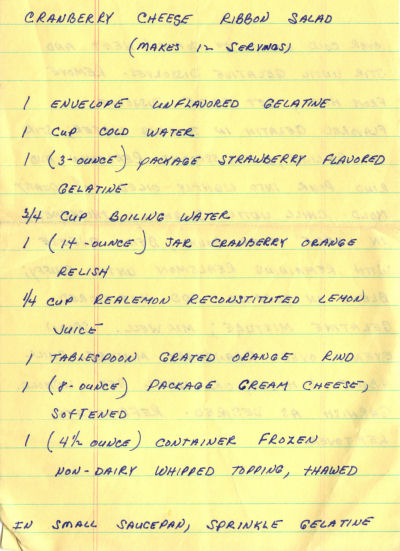 CRANBERRY CHEESE RIBBON SALAD
(MAKES 12 SERVINGS)
1 ENVELOPE UNFLAVORED GELATINE
1 CUP COLD WATER
1 (3-OUNCE) PACKAGE STRAWBERRY FLAVORED
GELATINE
3/4 CUP BOILING WATER
1 (14-OUNCE) JAR CRANBERRY ORANGE
RELISH
1/4 CUP REALEMON RECONSTITUTED LEMON
JUICE
1 TABLESPOON GRATED ORANGE RIND
1 (8-OUNCE) PACKAGE CREAM CHEESE,
SOFTENED
1 (4 1/2 OUNCE) CONTAINER FROZEN
NON-DAIRY WHIPPED TOPPING, THAWED
IN SMALL SAUCEPAN, SPRINKLE GELATINE